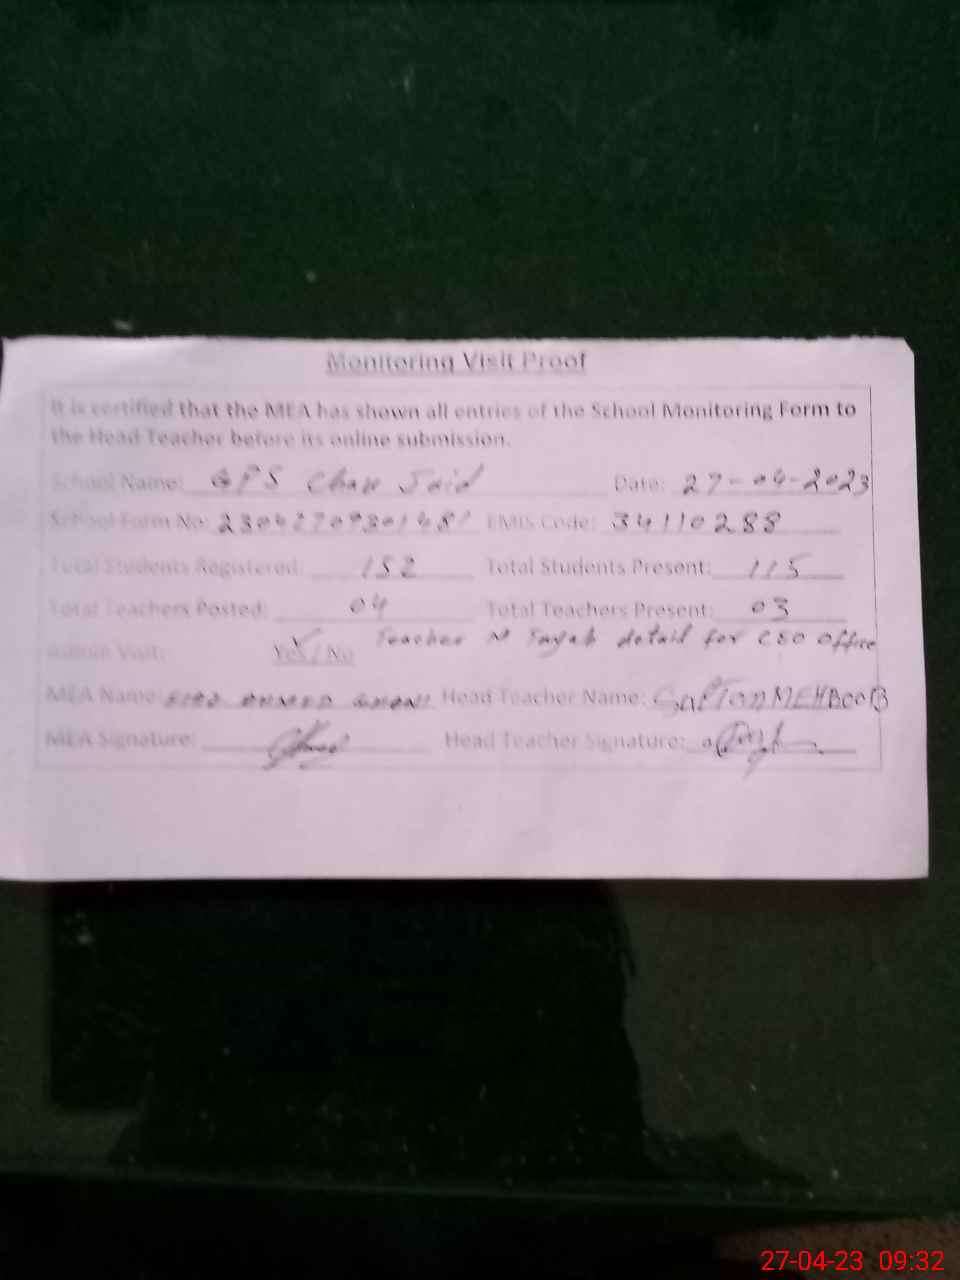 Monitoring Visit Proof
It is certified that the MEA has shown all entries of the School Monitoring Form to
the Head Teacher before its online submission.
School Name: GPS Date: 27-04-2023
School Form No: EMIS Code: 34110288
Total Students Registered: 152 Total Students Present: 115
Total Teachers Posted: 04 Total Teachers Present: 03
Teacher detail for CEO office
Admin Visit: Yes / No
MEA Name: Head Teacher Name: MEHBOOB
MEA Signature: Head Teacher Signature:
27-04-23 09:32